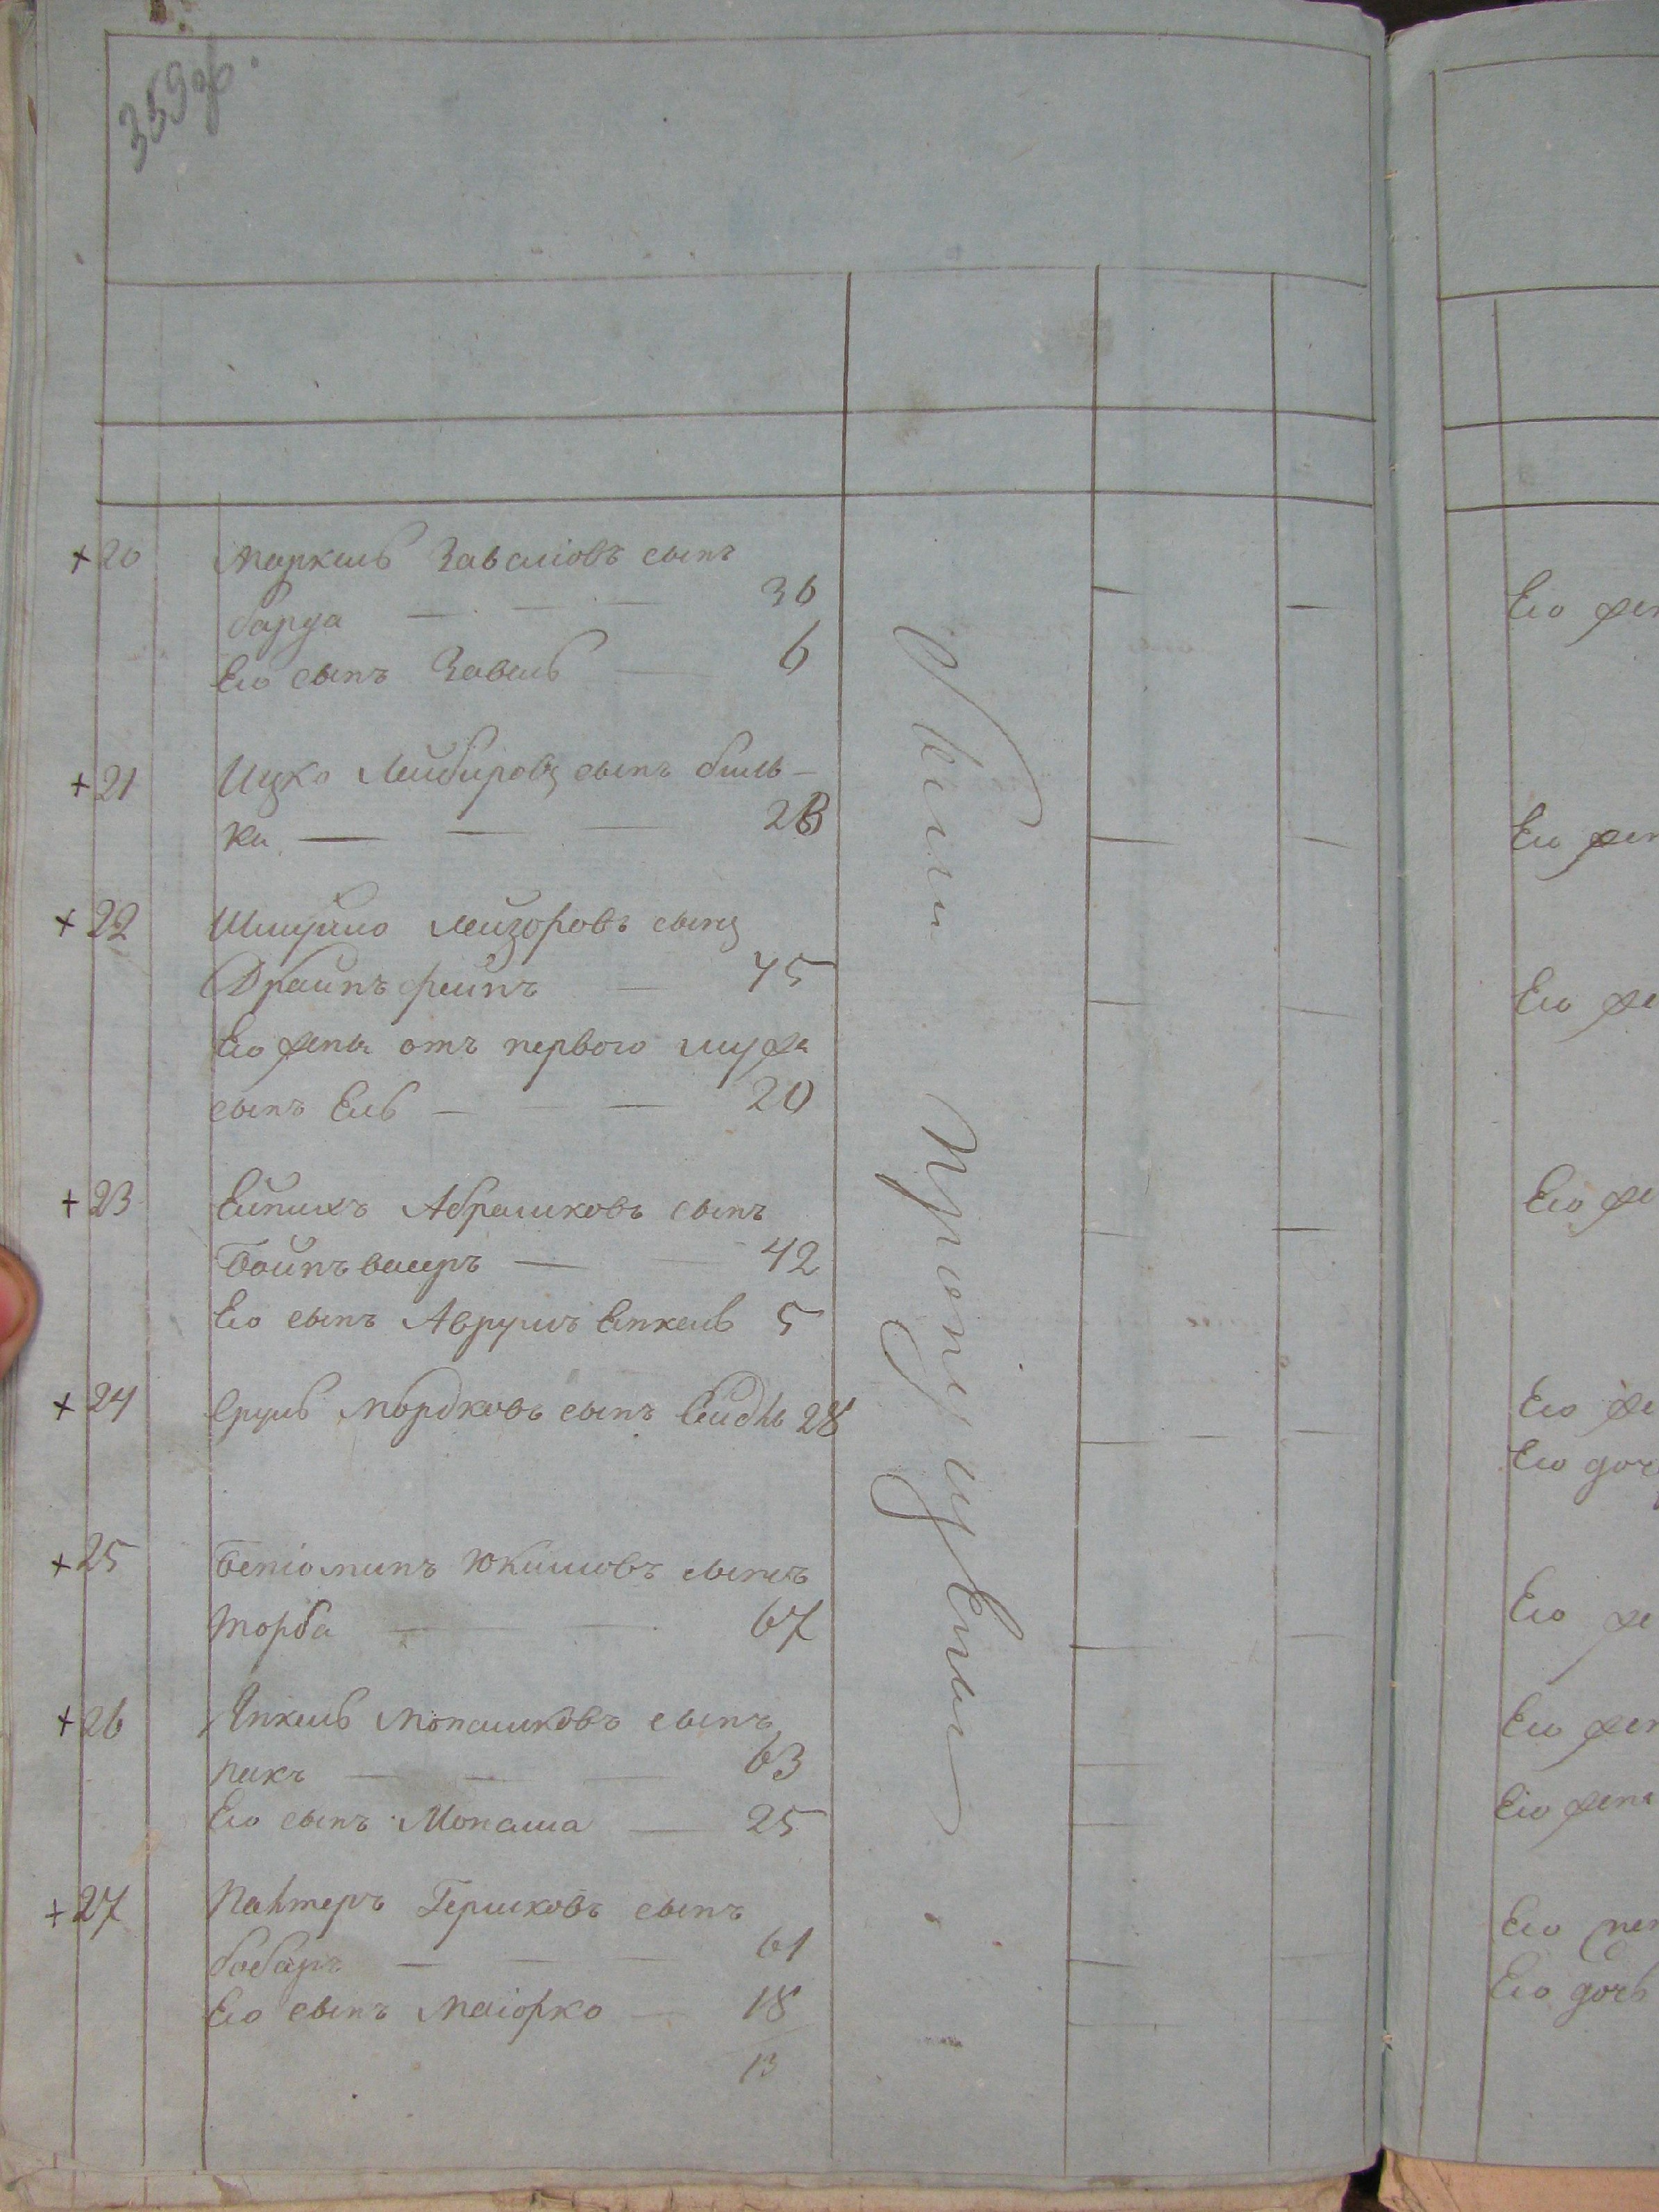 359 об.
+20 Меркель Завалiовъ сынъ
барда — — — 36
Его сынъ Завель — 6
+21 Ицко Лейбировъ сынъ биль–
ка — — — 28
+22 Шмуйло Лейзоровъ сынъ
Драйнъ фейнъ — 45
Его жены отъ первого мужа
сынъ Ель — — 20
+23 Ейнихъ Абрамковъ сынъ
Войнъ васеръ — — 42
Его сынъ Аврумъ Енкель 5
+24 Сруль Мордковъ сынъ 28
+25 Бенiоминъ Юкимовъ сынъ
торба — — 67
+26 Янкель Монашковъ сынъ
пакъ — — — 63
Его сынъ Монаша — 25
+27 Пейтеръ Гершковъ сынъ
— — — 61
Его сынъ Маiорко — 18
13
Его
Его
Его
Его
Его
Его доч
Его
Его
Его жена
Его
Его доч